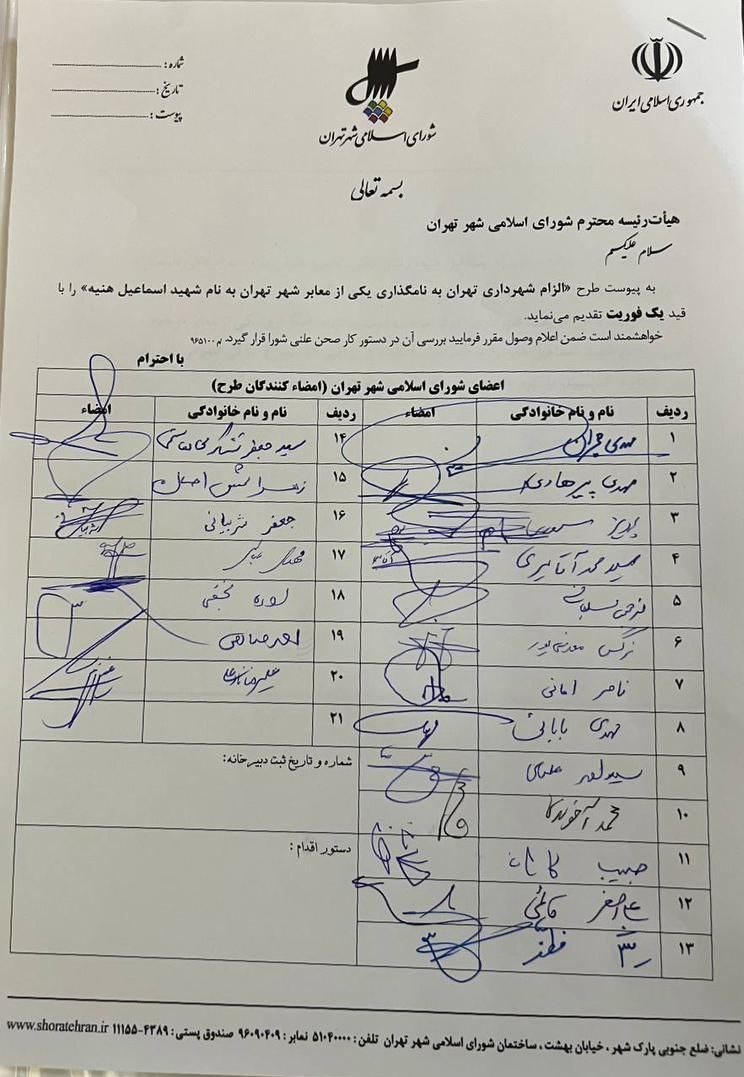 جمهوری اسلامی ایران
شورای اسلامی شهر تهران
شماره:
تاریخ:
پیوست:
بسمه تعالی
هیأت‌رئیسه محترم شورای اسلامی شهر تهران
سلام علیکم
به پیوست طرح «الزام شهرداری تهران به نامگذاری یکی از معابر شهر تهران به نام شهید اسماعیل هنیه» را با
قید یک فوریت تقدیم می‌نماید.
خواهشمند است ضمن اعلام وصول مقرر فرمایید بررسی آن در دستور کار صحن علنی شورا قرار گیرد. م/۹۶۵۱۰۰
با احترام
اعضای شورای اسلامی شهر تهران (امضاء کنندگان طرح)
ردیف نام و نام خانوادگی امضاء ردیف نام و نام خانوادگی امضاء
۱ مهدی چمران ۱۴ سید جعفر
۲ مهدی پیرهادی ۱۵
۳ پرویز ۱۶ جعفر شربیانی
۴ سید محمد آقامیری ۱۷ مهدی
۵ ۱۸
۶ نرگس معدنی‌پور ۱۹ احمد صادقی
۷ ناصر امانی ۲۰ علیرضا
۸ مهدی بابائی ۲۱
۹ سید احمد علوی
شماره و تاریخ ثبت دبیرخانه:
۱۰ محمد آخوندی
۱۱ حبیب کاشانی
دستور اقدام:
۱۲ علی اصغر قائمی
۱۳
نشانی: ضلع جنوبی پارک شهر، خیابان بهشت، ساختمان شورای اسلامی شهر تهران تلفن: ۵۱۰۴۰۰۰۰ نمابر: ۹۶۰۹۰۴۰۹ صندوق پستی: ۴۳۸۹-۱۱۱۵۵ www.shoratehran.ir